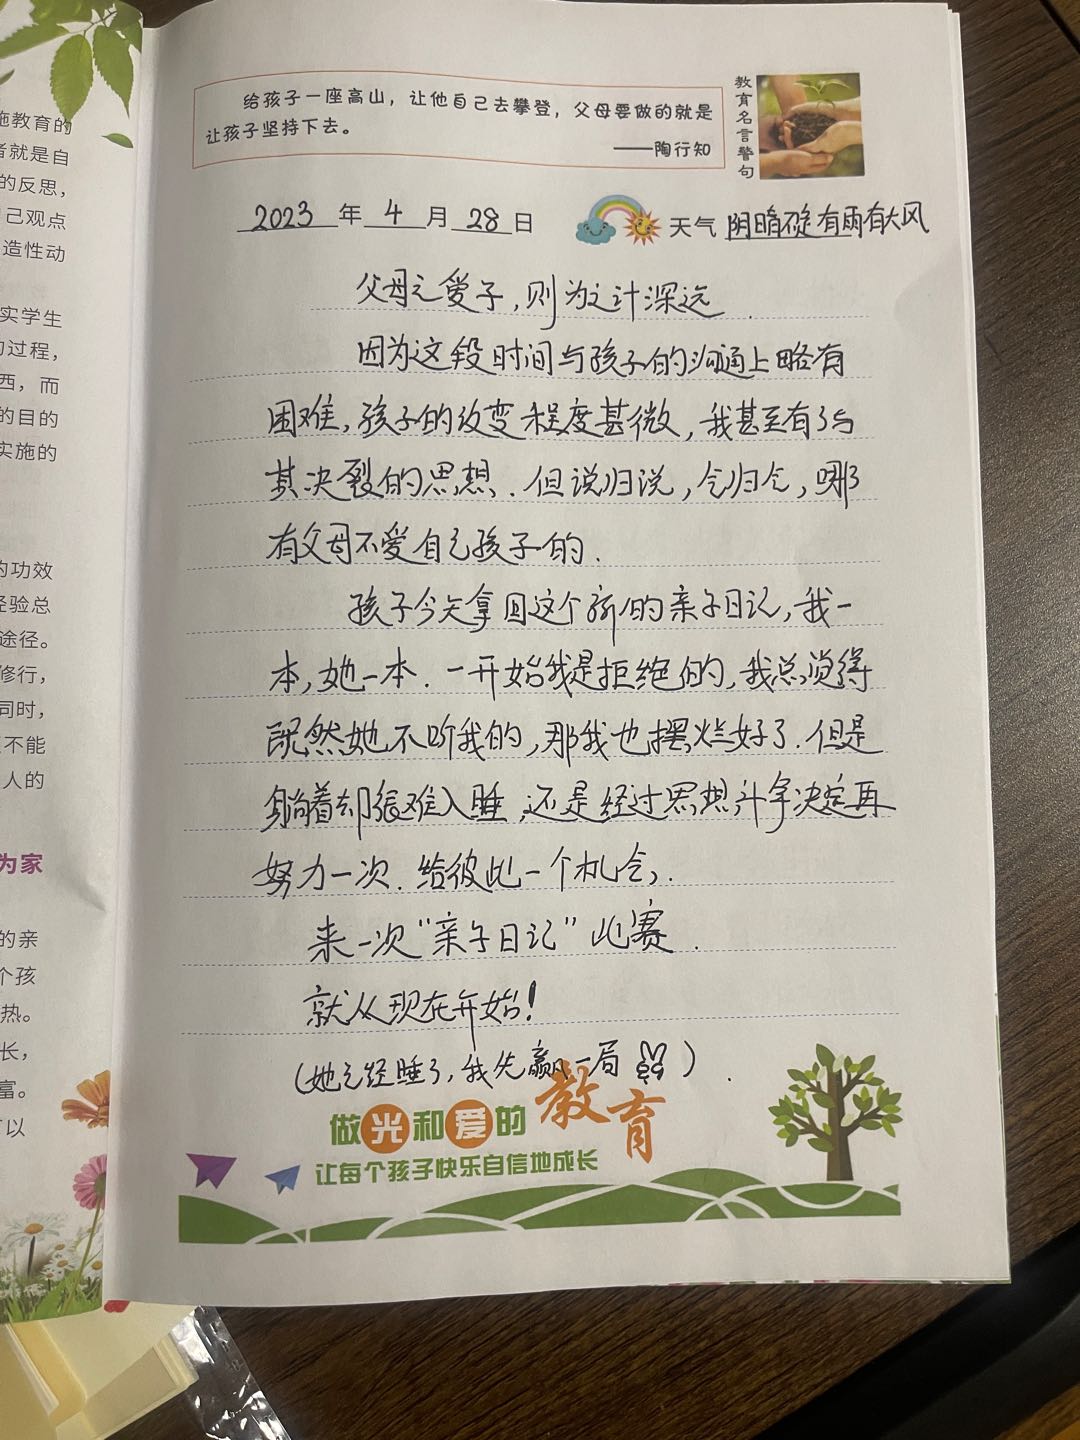 施教育的
者就是自
的反思，
自己观点
造性动
实学生
的过程，
西，而
的目的
实施的
的功效
经验总
途径。
修行，
同时，
不能
人的
为家
的亲
个孩
热。
长，
富。
以
给孩子一座高山，让他自己去攀登，父母要做的就是
让孩子坚持下去。
——陶行知
教育名言警句
2023年4月28日
天气 阴晴不定有雨有大风
父母之爱子，则为之计深远
因为这段时间与孩子的沟通上略有
困难，孩子的改变程度甚微，我甚至有了与
其决裂的思想．但说归说，气归气，哪
有父母不爱自己孩子的．
孩子今天拿回这个新的亲子日记，我一
本，她一本．一开始我是拒绝的，我总觉得
既然她不听我的，那我也摆烂好了．但是
躺着却很难入睡，还是经过思想斗争决定再
努力一次．给彼此一个机会，．
来一次“亲子日记”比赛．
就从现在开始！
（她已经睡了，我先赢一局）．
做光和爱的教育
让每个孩子快乐自信地成长